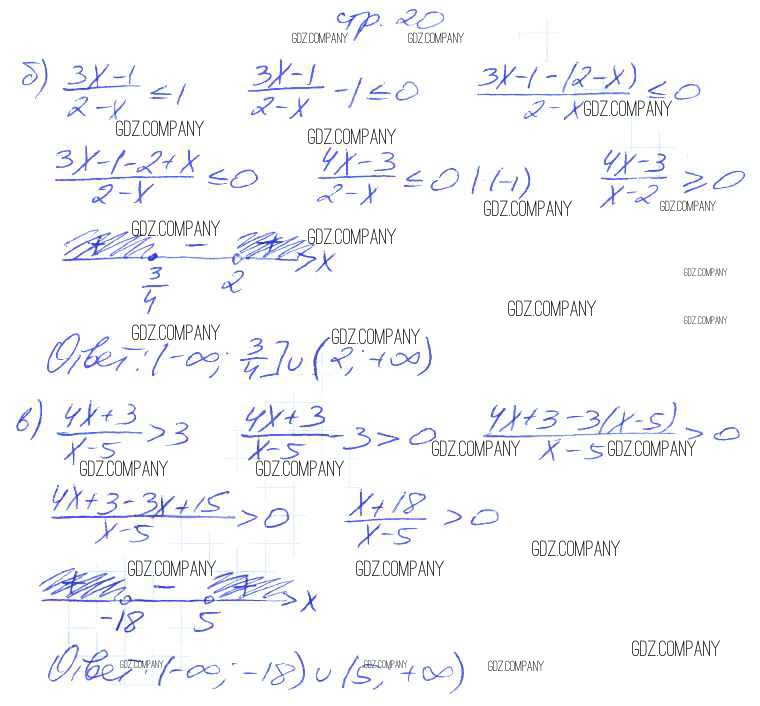 стр. 20
GDZ.COMPANY GDZ.COMPANY
б) (3x-1)/(2-x) ≤ 1 (3x-1)/(2-x) - 1 ≤ 0 (3x-1-(2-x))/(2-x) ≤ 0
GDZ.COMPANY GDZ.COMPANY GDZ.COMPANY
(3x-1-2+x)/(2-x) ≤ 0 (4x-3)/(2-x) ≤ 0 | (-1) (4x-3)/(x-2) ≥ 0
GDZ.COMPANY GDZ.COMPANY
GDZ.COMPANY GDZ.COMPANY
+ - + x
3/4 2
GDZ.COMPANY
GDZ.COMPANY
GDZ.COMPANY
GDZ.COMPANY GDZ.COMPANY
Ответ: (-∞; 3/4] ∪ (2; +∞)
в) (4x+3)/(x-5) > 3 (4x+3)/(x-5) - 3 > 0 (4x+3-3(x-5))/(x-5) > 0
GDZ.COMPANY GDZ.COMPANY
GDZ.COMPANY GDZ.COMPANY
(4x+3-3x+15)/(x-5) > 0 (x+18)/(x-5) > 0
GDZ.COMPANY
GDZ.COMPANY GDZ.COMPANY
+ - + x
-18 5
GDZ.COMPANY
Ответ: (-∞; -18) ∪ (5; +∞)
GDZ.COMPANY GDZ.COMPANY GDZ.COMPANY